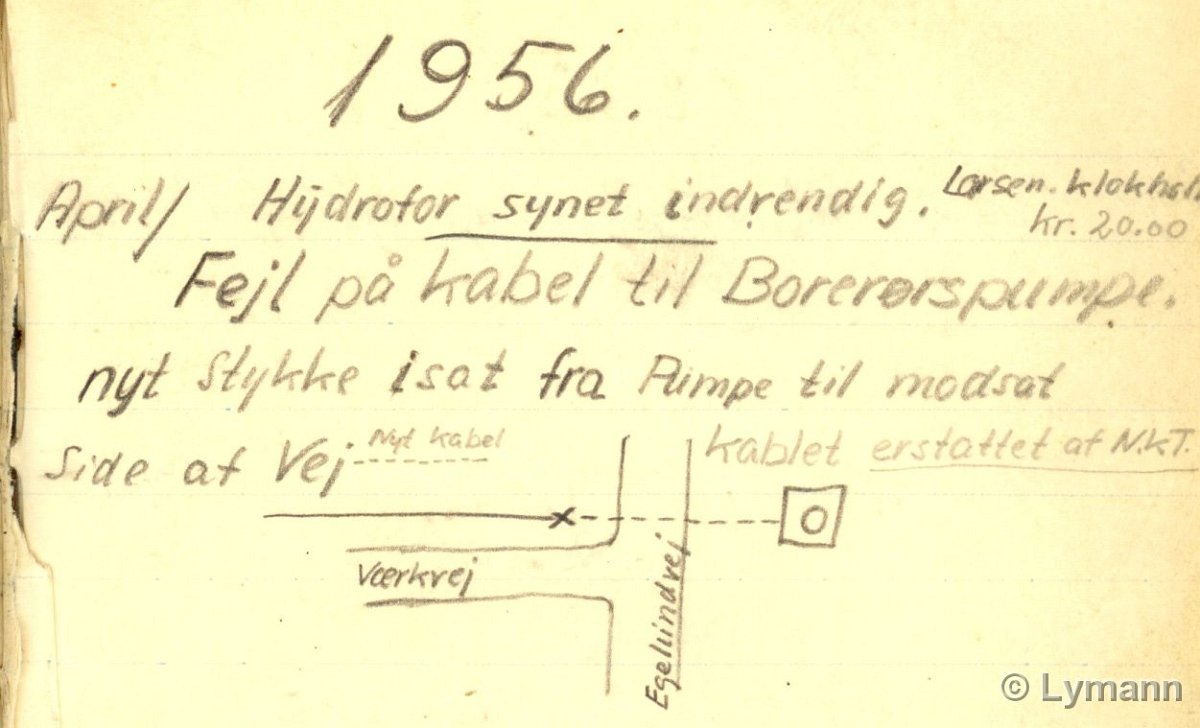 1956.
April/ Hydrofor synet indvendig. Larsen. klokhst
kr. 20.00
Fejl på kabel til Borerørspumpe.
nyt Stykke isat fra Pumpe til modsat
Side af Vej Nyt kabel
kablet erstattet af N.k.T.
Værkvej
Egelundvej
© Lymann